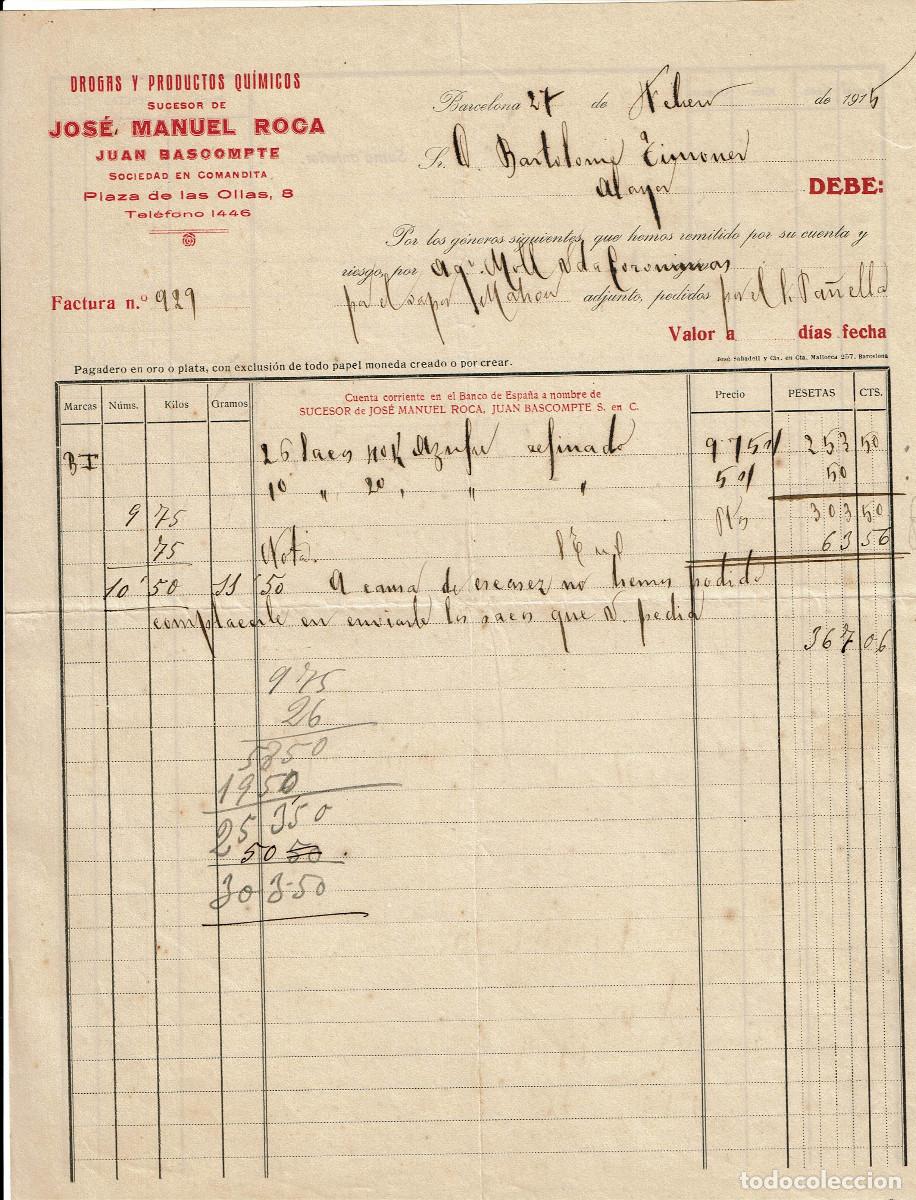 DROGAS Y PRODUCTOS QUÍMICOS
SUCESOR DE
JOSÉ MANUEL ROCA
JUAN BASCOMPTE
SOCIEDAD EN COMANDITA
Plaza de las Ollas, 8
Teléfono 1446
Barcelona 27 de de 1915
Sr. D. Bartolomé Timoner
Alayor DEBE:
Por los géneros siguientes, que hemos remitido por su cuenta y
riesgo, por Moll
Factura n.º 929
por el vapor Mahon adjunto, pedidos por el S. Pañella
Valor a días fecha
José Sabadell y Cía. en Cta. Mallorca 257. Barcelona
Pagadero en oro o plata, con exclusión de todo papel moneda creado o por crear.
Marcas Núms. Kilos Gramos Precio PESETAS CTS.
Cuenta corriente en el Banco de España a nombre de
SUCESOR de JOSÉ MANUEL ROCA, JUAN BASCOMPTE S. en C.
BT 26 sacos 40 K Azufre refinado 975 253 50
10 " 20 " " " 5 50
9 75 Pts 303 50
75 Nota 63 56
10 50 50 A causa de escasez no hemos podido
complacerle en enviarle los sacos que V. pedia
367 06
975
26
5850
1950
25350
50 50
30350
todocoleccion